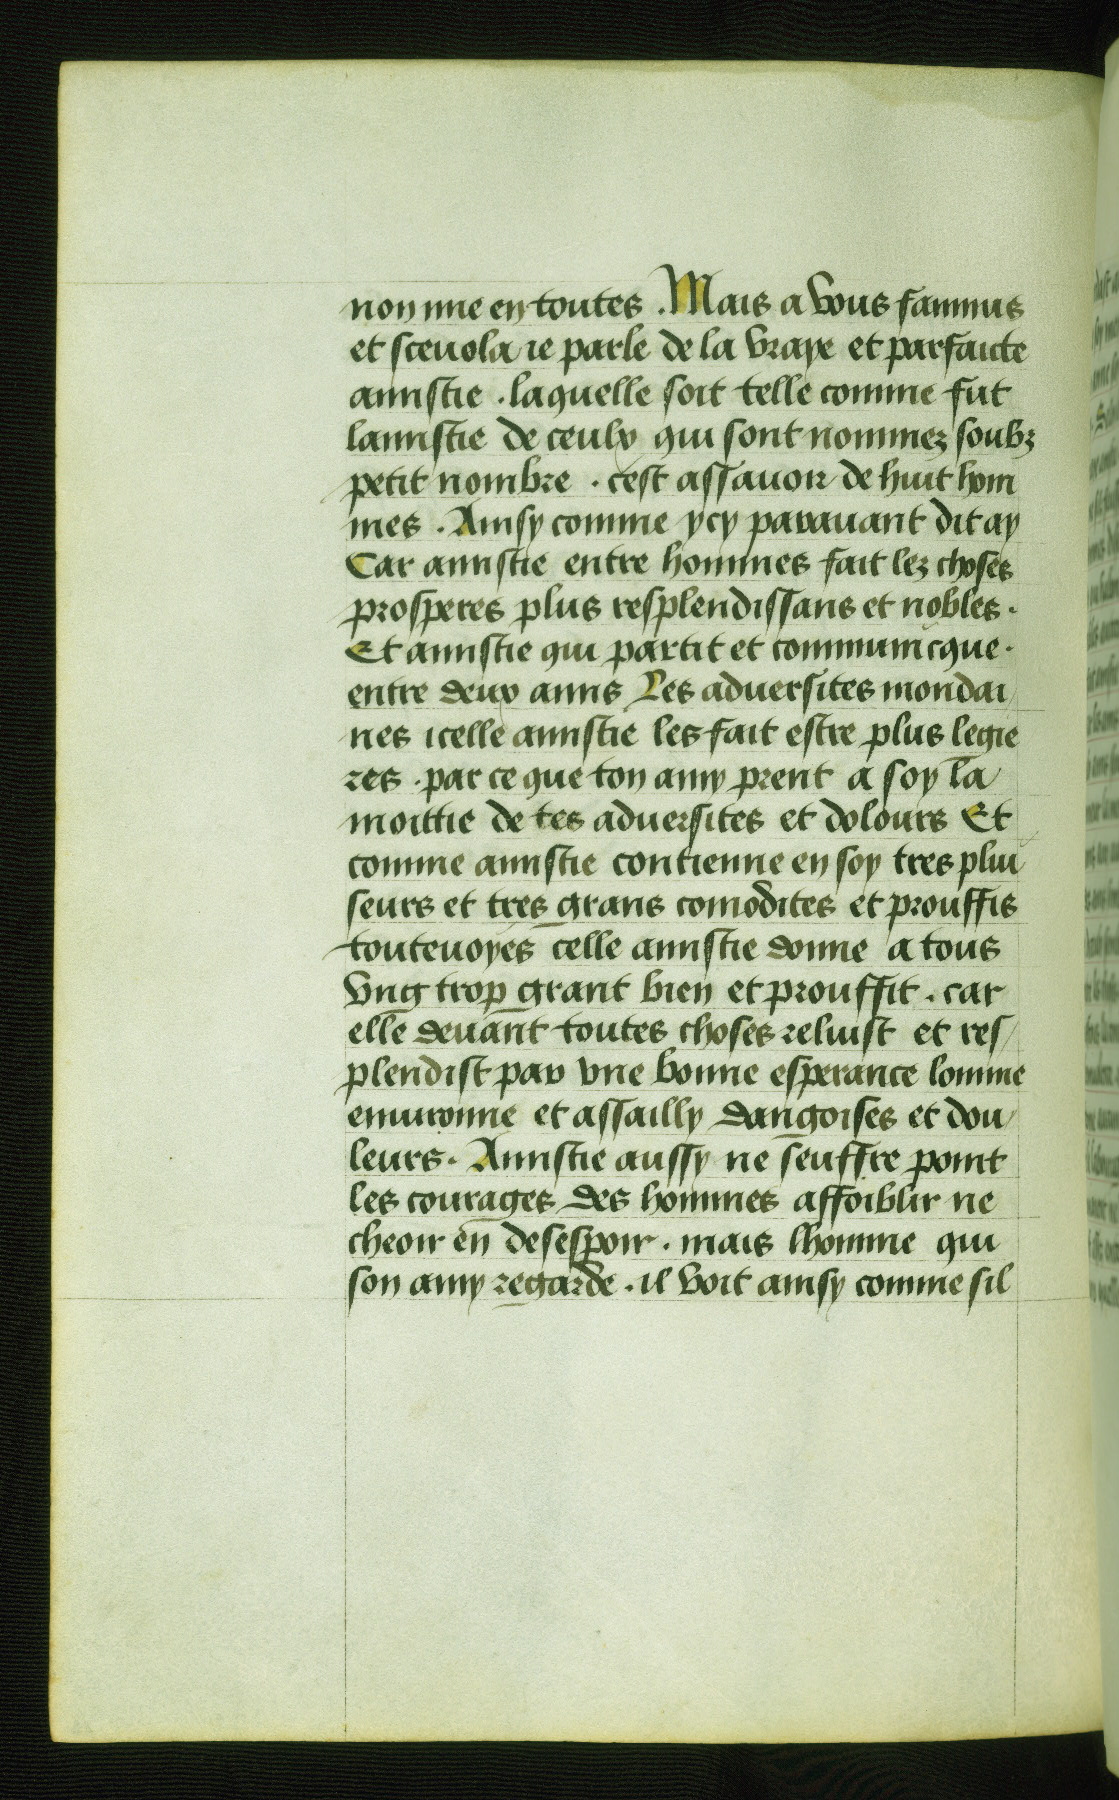 non mie en toutes . Mais a vous fannius
et sceuola ie parle de la vraye et parfaicte
amistie . laquelle soit telle comme fut
lamistie de ceulx qui sont nommez soubz
petit nombre . cest assauoir de huit hom
mes . Ainsy comme ycy parauant dit ay
Car amistie entre hommes fait lez choses
prosperes plus resplendissans et nobles .
Et amistie qui partit et communicque .
entre deux amis Les aduersites mondai
nes icelle amistie les fait estre plus legie
res . par ce que ton amy prent a soy la
moittie de tes aduersites et dolours Et
comme amistie contienne en soy tres plui
seurs et tres grans comodites et prouffis
touteuoyes celle amistie donne a tous
vng trop grant bien et prouffit . car
elle deuant toutes choses reluist et res/
plendist par vne bonne esperance lomme
enuironne et assailly dangoises et dou/
leurs . Amistie aussy ne seuffre point
les courages des hommes affoiblir ne
cheoir en desespoir . mais lhomme qui
son amy regarde . il voit ainsy comme sil